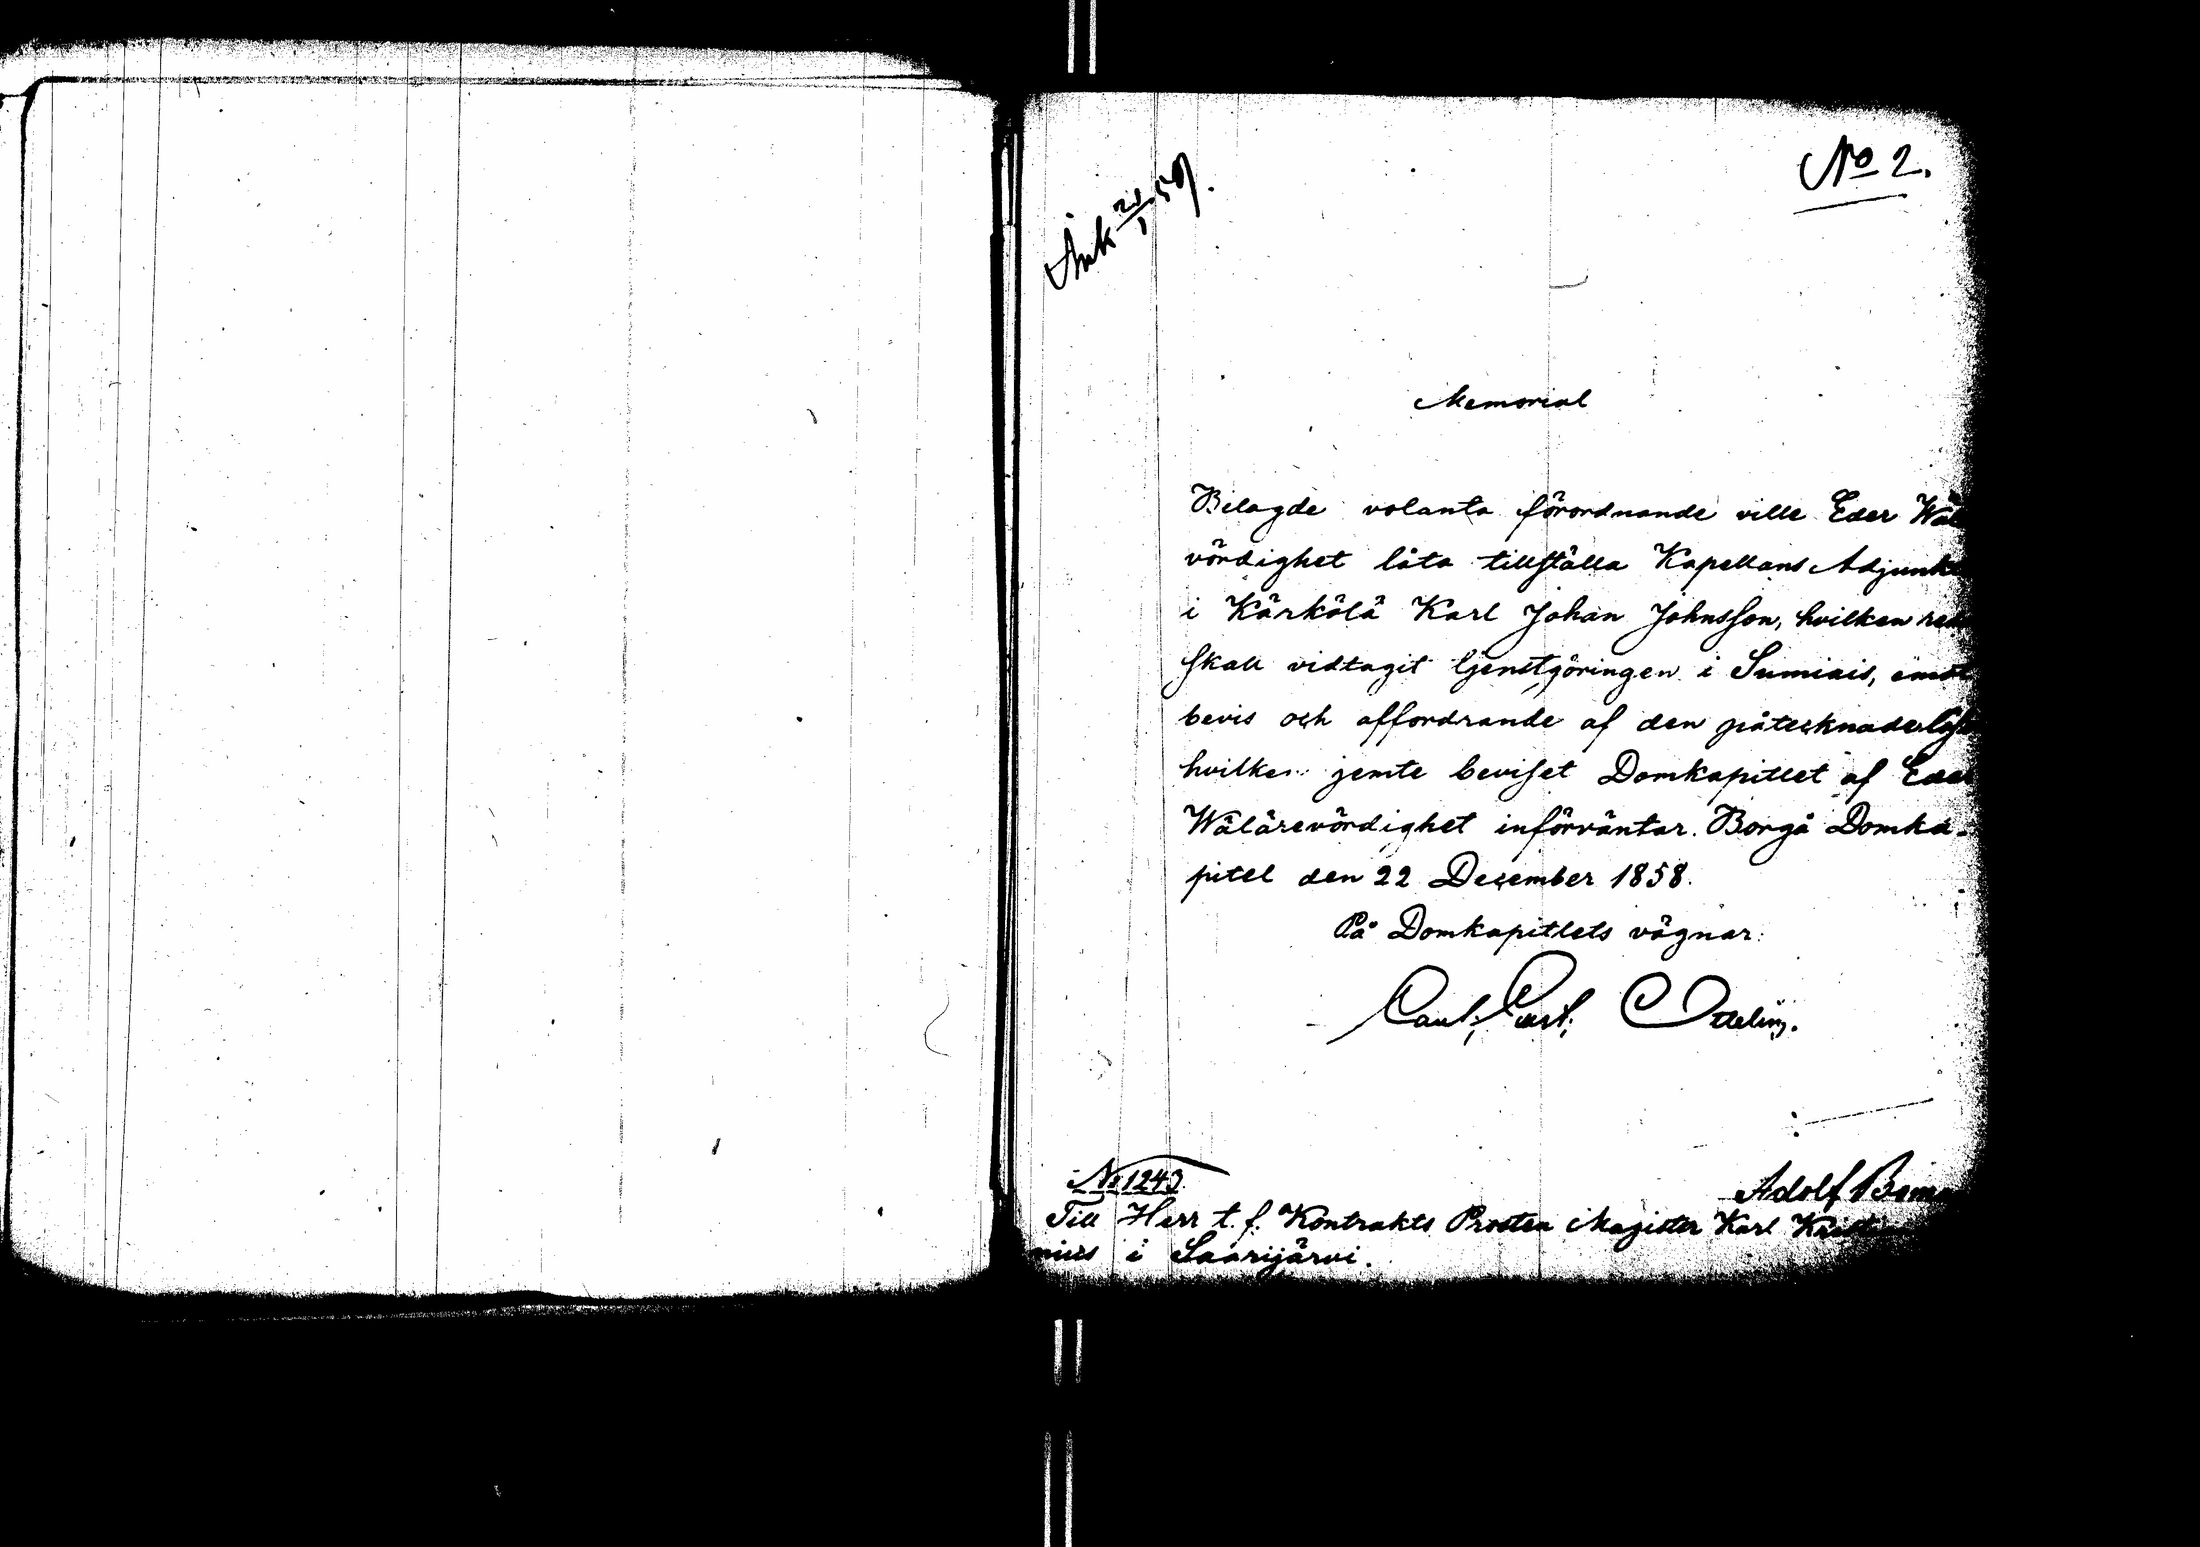 No 2.
Ank 21/1 59.
Memorial
Bilagde volanta förordnande ville Eder Wäl
vördighet låta tillställa Kapellans Adjunkt
i Kärkölä Karl Johan Johnsson, hvilken
skall vidtagit tjenstgöringen i Sumiais, emot
bevis och affordrande af den påtecknade
hvilken jemte beviset Domkapitlet af Eder
Wälärevördighet införväntar. Borgå Domka-
pitel den 22 December 1858.
På Domkapitlets vägnar:
Carl Gust. Ottelin.
No 1243
Adolf
Till Herr t. f. Kontrakts Prosten Magister Karl
i Saarijärvi.